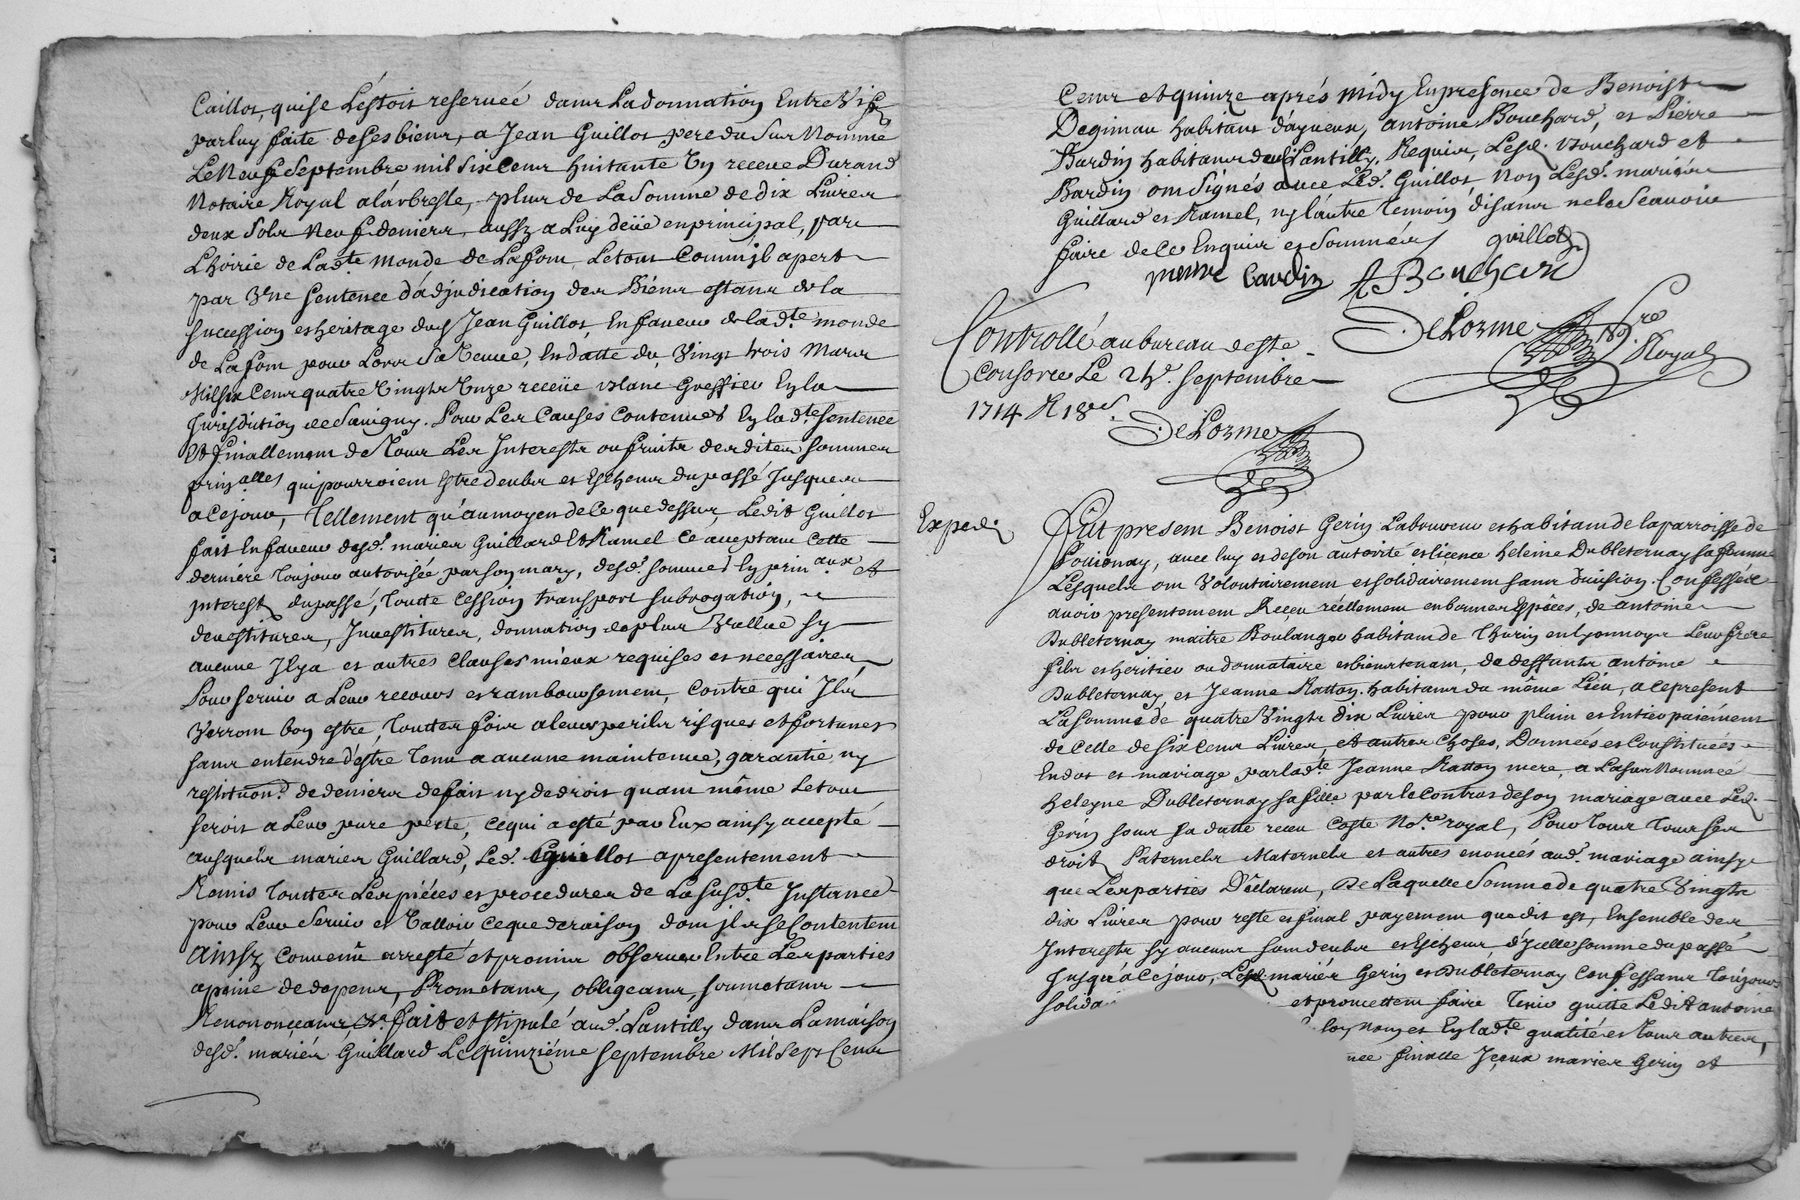 Caillot, qui se Léstoit reservéé dans La donnation Entre Vifs
par luy faite de ses biens, a Jean Guillot pere du sus Nommé
Le Neuf Septembre mil six cens huitante Un receue Durand
Notaire Royal a lárbresle, plus de La Somme de dix Livres
deux Sols Neuf deniers aussy a Luy deüe en principal, par
L'hoirie de Ladte monde de Lafont, Le tout Comm'jl apert
par Vne Sentence d'ádjudication des Biéns estans de la
Succession et heritage dud. Jean Guillot En faveur de lad.te monde
de Lafont pour Lors Sa Veuve, En datte du Vingt trois Mars
Mil six Cens quatre Vingts Unze receüe blanc Greffier En la
Jurisdiction de Savigny. Pour Les Causes Contenues En lad.te sentence
Et finallement de Tous Les Interests ou fruits desdites Sommes
prinalles qui pourroient Estre deubs et Escheus du passé Jusques
a Ce jour, Tellement qu'au moyen de Ce que dessus, Ledit Guillot
fait En faveur desd. mariés Guillard Et Ramel Ce acceptant Cette
derniére Toujour autorisée par son mary, desd. sommes En prinaux et
jnterests du passé, Toutte Cession transport subrogation,
devestitures, Jnvestitures, donnation de plus Vallue sy
aucune Jl y a et autres clauses mieux requises et necessaires
Pour servir a Leur recours et ramboursement, Contre qui Jls
Verront bon estre, Touttes fois a leurs perils risques et fortunes
sans entendre d'estre Tenu a aucune maintenue, garantie, ny
restituon. de deniers de fait ny de droit quant même Le tout
seroit a Leur pure perte, Ce qui a esté par Eux ainsy accepté
ausquels mariés Guillard, Led. Guillot a presentement
Remis Touttes Les piéces et procedures de La susd.te Jnstance
pour Leur Servir et Valloir Ce que de raison, dont jls se Contentent
Ainsy Convenu arresté et promis observer Entre Les parties
a peine de depens, Promettans, obligeans, soumettans
Renononçeans &a fait et stipulé aud. Lantilly dans La maison
desd. mariés Guillard Le quinziéme Septembre Mil Sept Cens
Cens et quinze aprés midy En presence de Benoist
Degimau habitant d'ayveux, antoine Bouchard, et Pierre
Bardin habitans dud. Lantilly, Requis, Lesd. Bouchard et
Bardin ont Signés avec Led. Guillot Non Lesd. mariées
Guillard et Ramel, ny l'autre Temoin disans ne le Scavoir
faire de Ce Enquis et Sommés
guillot
pierre bardin ABouchard
DeLorme No.re Royal
Controllé au bureau de ste
Consorce Le 24e. septembre
1714 R 18s.
DeLorme
Exped.
Fut present Benoist Gerin Laboureur et habitant de la parroisse de
Pollionay, avec luy et de son autorité et licence heleine Dubleternay sa femme
Lesquels ont Volontairement et solidairement sans Division. Confessés
avoir presentement Reçeu réellement en bonnes Espéces, de antoine
Dubleternay maitre Boulanger habitant de Thurin en lyonnoys Leur frere
fils et heritier ou donnataire et bientenant, de deffunts antoine
Dubleternay et Jeanne Ratton habitans du même Lieu, a ce present
La somme de quatre Vingts dix Livres pour plain et Entier paiément
de Celle de six cens Livres, et autres Choses, Données et Constituées
En dot et mariage par lad.te Jeanne Ratton mere, a La sus Nommée
heleyne Dubleternay sa fille par le Contrat de son mariage avec Led.
Gerin sous sa datte receu Coste No.re royal, Pour Tous Tous ses
droits Paternels Maternels et autres enoncés aud. mariage ainsy
que Les parties Déclarent, De Laquelle Somme de quatre Vingts
dix Livres pour reste et final payement que dit est, Ensemble des
Interests sy aucuns sont deubs et Escheus d'yCelle somme du passé
Jusqu'à Ce jour, Lesd. mariés Gerin et Dubleternay Confessans Toujours
solidai et promettent faire Tenir quitte Ledit antoine
son nom et En lad.te qualité et Tous autres,
nce finalle Jçeux mariés Gerin et